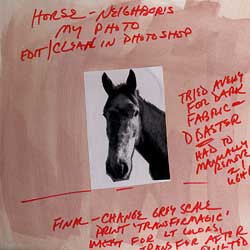 HORSE - NEIGHBORS
MY PHOTO
EDIT/CLEAN IN PHOTOSHOP
TRIED AVERY
FOR DARK
FABRIC -
DISASTER
HAD TO
MANUALLY
REMOVE
FINAL - CHANGE GREYSCALE
PRINT 'TRANSFERMAGIC',
WAIT FOR LT COLORS,
TRANSFER AFTER